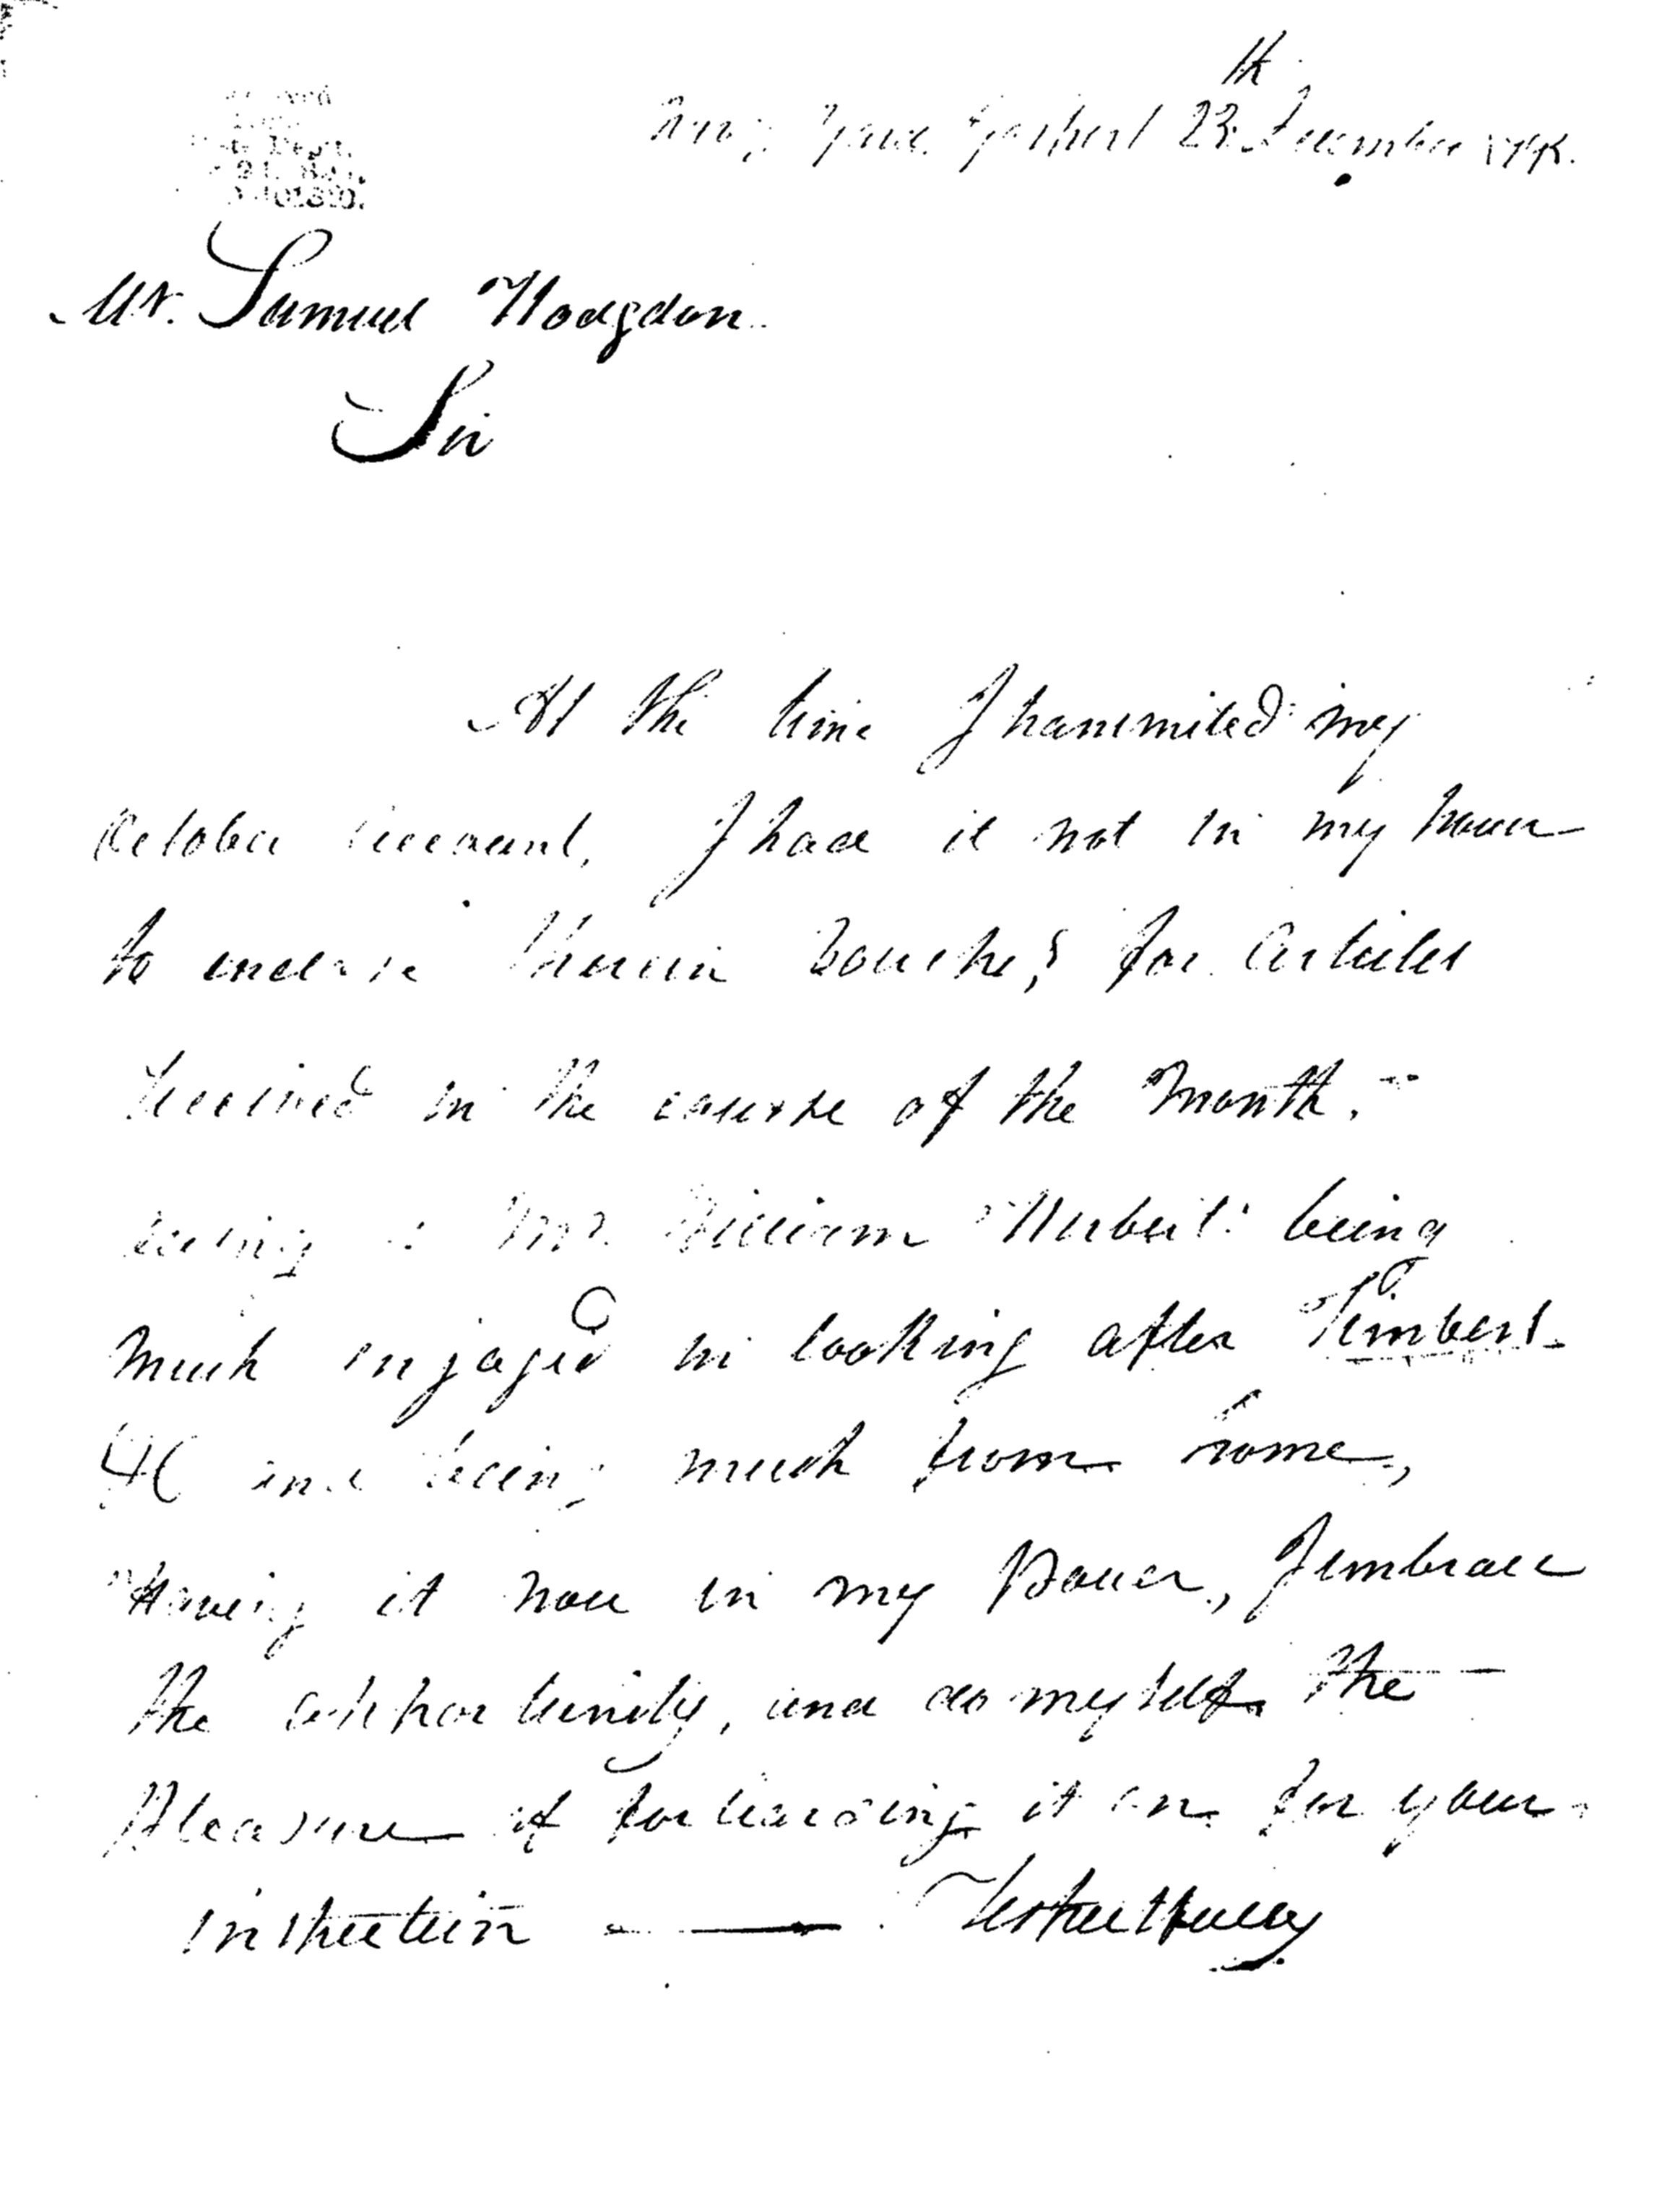 Navy Yard Gosport 23th December 1795.
Mr. Samuel Hodgdon
Sir
At the time I transmited my
October account, I had it not in my power
to enclose therein Vouchers for Articles
Received in the course of the Month.
owing to Mr. William being
Much ingaged in looking after Timbers
&c and being much from home,
Having it now in my Power, I embrace
the opportunity, and do myself the
Pleasure of forwarding it on for your
inspection — Respectfully